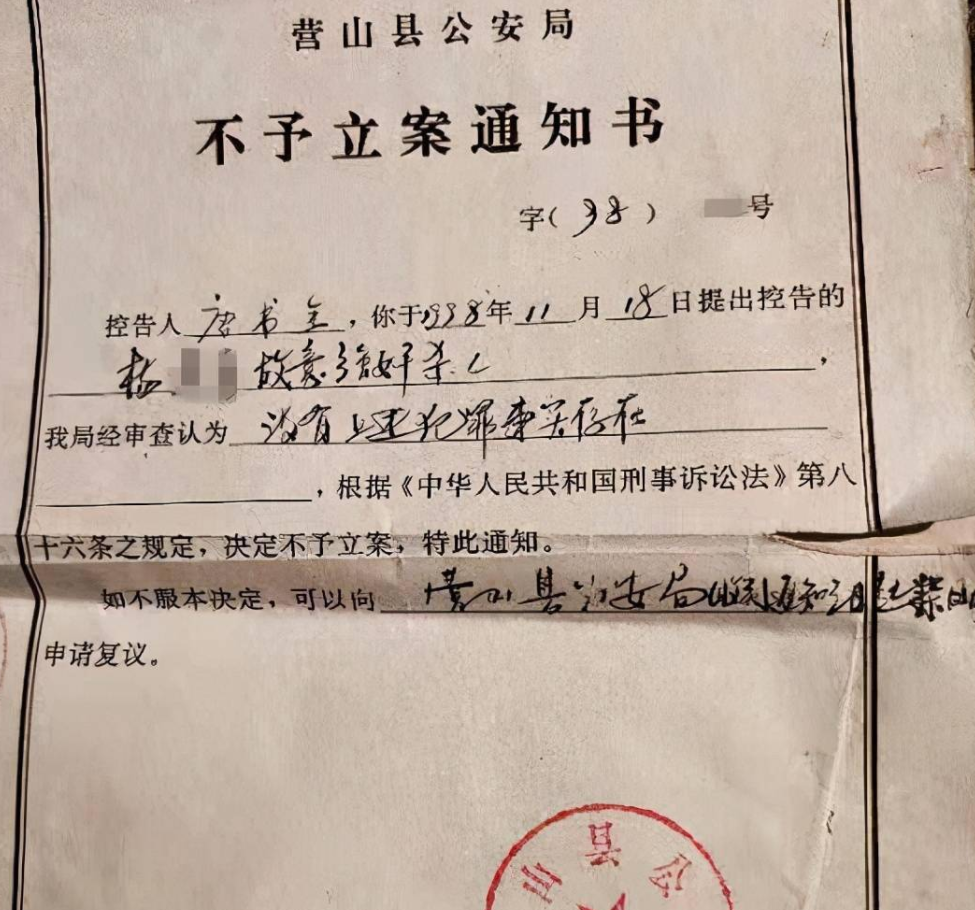 营山县公安局
不予立案通知书
字(98) 号
控告人 唐书全,你于1998年11月18日提出控告的
杨 故意强奸杀人,
我局经审查认为 没有上述犯罪事实存在
,根据《中华人民共和国刑事诉讼法》第八
十六条之规定,决定不予立案,特此通知。
如不服本决定,可以向 营山县公安局收到通知
申请复议。
山县公